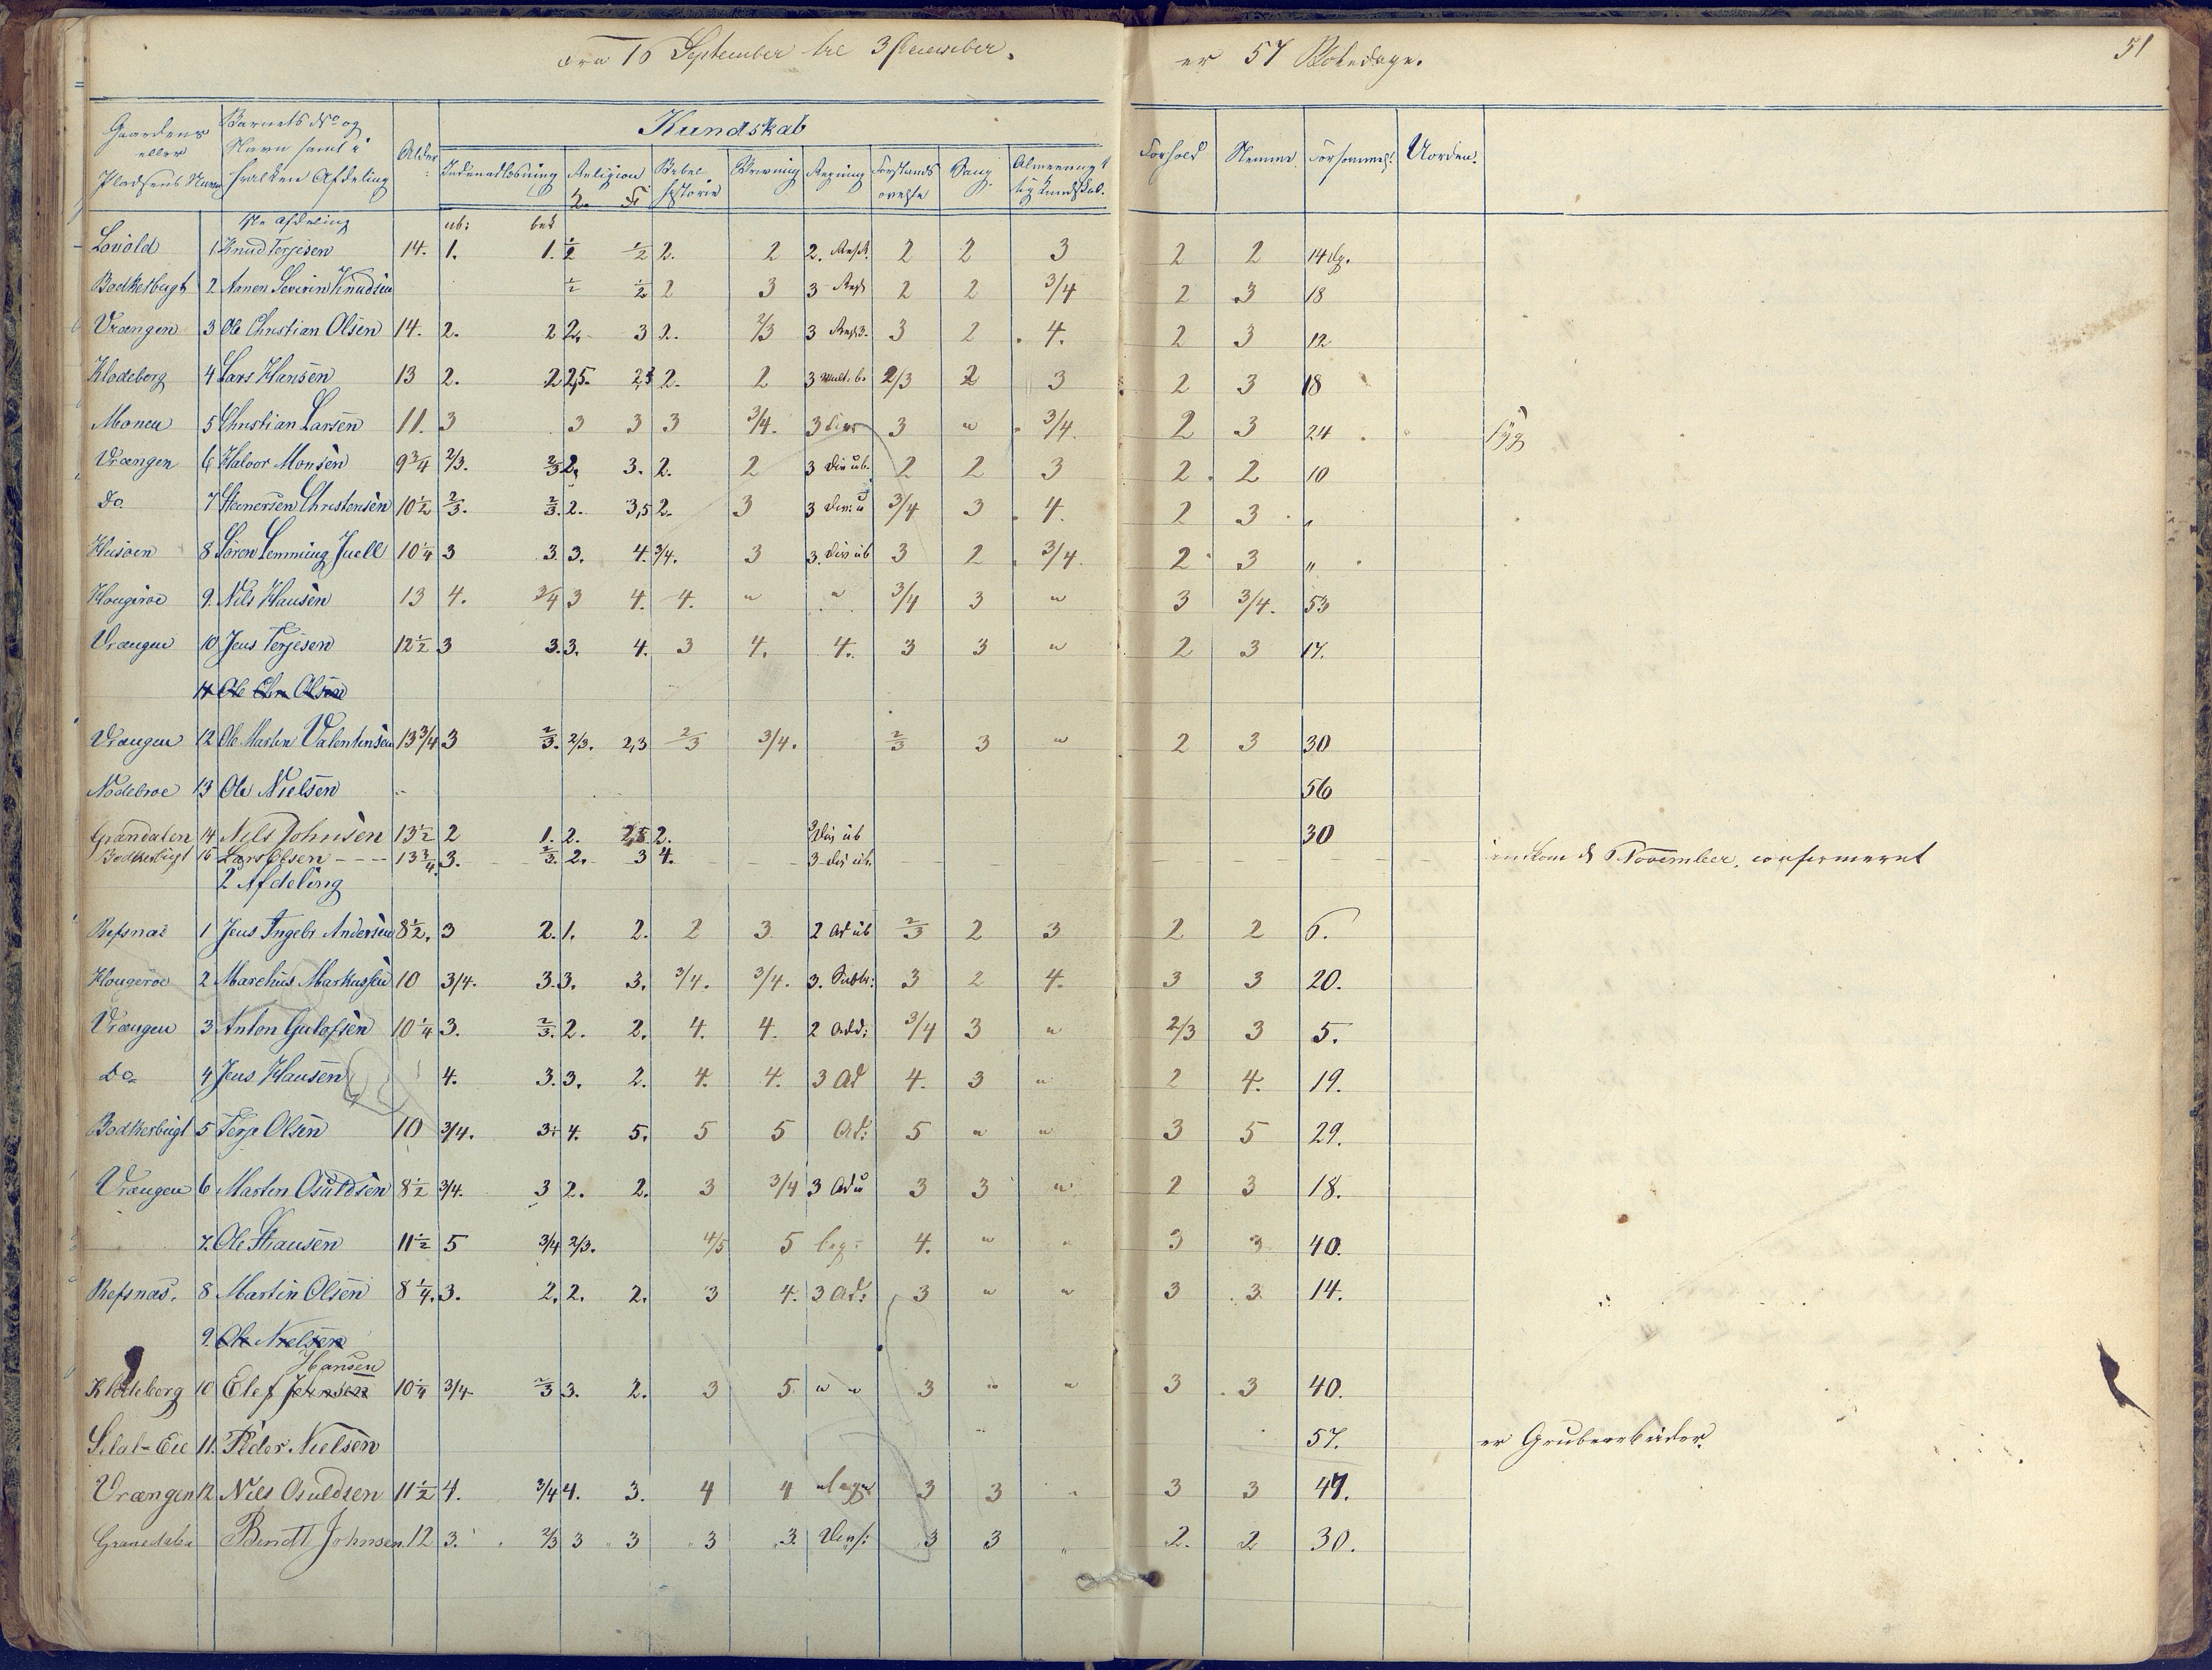 16 September til 3 December. er 57 Skoledage. 51
Gaardens eller Pladsens Navn Barnets No og Navn samt i hvilken Afdeling Alder Kundskab Forhold Nemme Forsømmel: Uorden.
Indenadlæsning Religion Bibelhistorie Skrivning Regning Forstands øvelse Sang Almeennyttig Kundskab.
1ste Afdeling ub: bes
Lovold 1 Knud Terjesen 14. 1. 1. 1/2 1/2 2. 2 2. 2 2 3 2 2 14 dg.
Bødkerbugt 2 Severin Knudsen 1/2 1/2 2 3 3 2 2 3/4 2 3 18
Vrængen 3 Ole Christian Olsen 14. 2. 2 2. 3 2. 2/3 3 3 2 4. 2 3 12
Klodeborg 4 Lars Hansen 13 2. 2 2,5. 2,5 2. 2 3 Mult. b. 2/3 2 3 2 3 18
Monen 5 Christian Larsen 11. 3 3 3 3 3/4. 3 3 " 3/4. 2 3 24 syg
Vrængen 6 Halvor Monsen 9 3/4 2/3. 2/3 2. 3. 2. 2 3 Div ub. 2 2 3 2 2 10
Do 7 Christensen 10 1/2 2/3. 2/3. 2. 3,5 2. 3 3 Div: u 3/4 3 4. 2 3 "
8 Søren Lemming Juell 10 1/4 3 3. 3. 4. 3/4. 3 3. Div ub 3 2 3/4. 2 3 "
Hougerøe 9. Nils Hansen 13 4. 3/4 3 4. 4. " " 3/4 3 " 3 3/4. 53
Vrængen 10 Jens Terjesen 12 1/2 3 3. 3. 4. 3 4. 4. 3 3 " 2 3 17.
11 Ole Chr. Olsen
Vrængen 12 Ole Martin Valentinsen 13 3/4 3 2/3. 2/3. 2,3 2/3 3/4. 2/3 3 " 2 3 30
Nødebroe 13 Ole Nielsen 56
Grændalen 14 Nils Johnsen 13 1/2 2 1. 2. 2,5 2. 3 Div ub 30
Bødkerbugt 15 Lars Olsen - - - 13 3/4 3. 2/3. 2. 3 4. 3 Div ub. indkom d 6 November, confirmeret
2 Afdeling
Refsnæs 1 Jens Ingebr Andersen 8 1/2. 3 2. 1. 2. 2 3 2 Ad ub 2/3 2 3 2 2 6.
Hougerøe 2 Marchus Markussen 10 3/4. 3. 3. 3. 3/4. 3/4. 3. Subtr: 3 2 4. 3 3 20.
Vrængen 3 Anton Gulofsen 10 1/4 3. 2/3. 2. 2. 4. 4. 2 Add: 3/4 3 " 2/3 3 5.
Do 4 Jens Hansen 4. 3. 3. 2. 4. 4. 3 Ad 4. 3 " 2 4. 19.
Bødkerbugt 5 Terje Olsen 10 3/4. 3. 4. 5. 5 5 Ad: 5 " " 3 5 29.
Vrængen 6 Martin Osuldsen 8 1/2 3/4. 3 2. 2. 3 3/4 3 Ad u 3 3 " 2 3 18.
7. Ole Hansen 11 1/2 5 3/4 2/3. 4/5 5 beg: 4. " " 3 3 40.
Refsnæs. 8 Martin Olsen 8 1/4. 3. 2. 2. 2. 3 4. 3 Ad: 3 " " 3 3 14.
9. Ole Nielsen
Hansen
Klodeborg 10 Elef Jensen 10 1/4 3/4 2/3 3. 2. 3 5 " " 3 " " 3 3 40.
11. Peder Nielsen 57. er Grubearbeider.
Vrængen 12 Nils Osuldsen 11 1/2 4. 3/4 4. 3. 4 4 3 3 " 3 3 47.
Grønedalen Berndt Johnsen 12 3. 2/3 3 3 3 3. 3 3 " 2. 2 30.